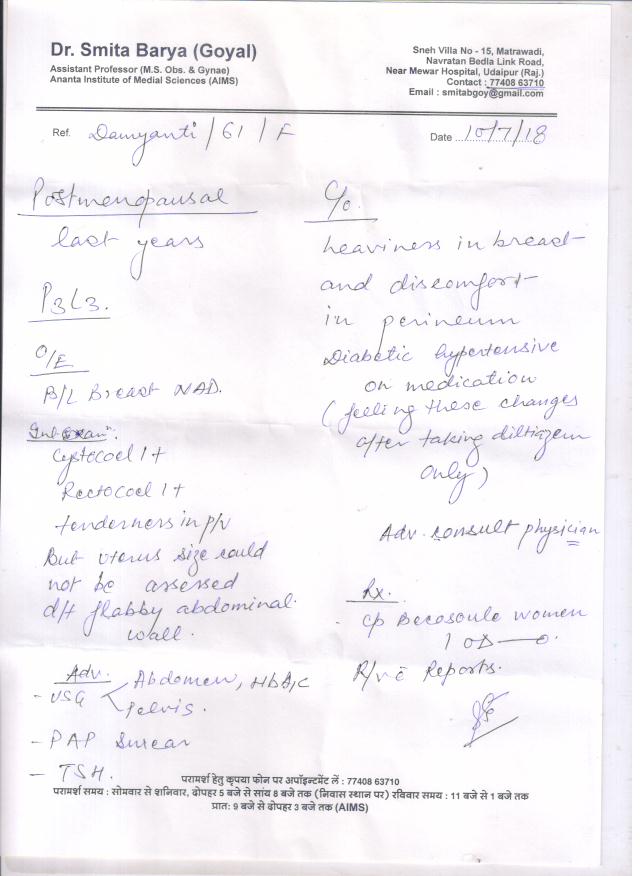 Dr. Smita Barya (Goyal)
Assistant Professor (M.S. Obs. & Gynae)
Ananta Institute of Medial Sciences (AIMS)
Sneh Villa No - 15, Matrawadi,
Navratan Bedla Link Road,
Near Mewar Hospital, Udaipur (Raj.)
Contact : 77408 63710
Email : smitabgoy@gmail.com
Ref. Damyanti / 61 / F
Date 10/7/18
Postmenopausal
last years
P3L3.
O/E
B/L Breast NAD.
Cystocoel 1+
Rectocoel 1+
tenderness in p/v
But uterus size could
not be assessed
d/t flabby abdominal
wall.
Adv.
- USG Abdomen, HbA1c
Pelvis.
- PAP Smear
- TSH.
C/o.
heaviness in breast
and discomfort
in perineum
Diabetic hypertensive
on medication
(feeling these changes
after taking diltiazem
only)
Adv. consult physician
Rx.
Cp Becosoule women
1 OD
R/v c̄ Reports.
परामर्श हेतु कृपया फोन पर अपॉइन्टमेंट लें : 77408 63710
परामर्श समय : सोमवार से शनिवार, दोपहर 5 बजे से सांय 8 बजे तक (निवास स्थान पर) रविवार समय : 11 बजे से 1 बजे तक
प्रातः 9 बजे से दोपहर 3 बजे तक (AIMS)